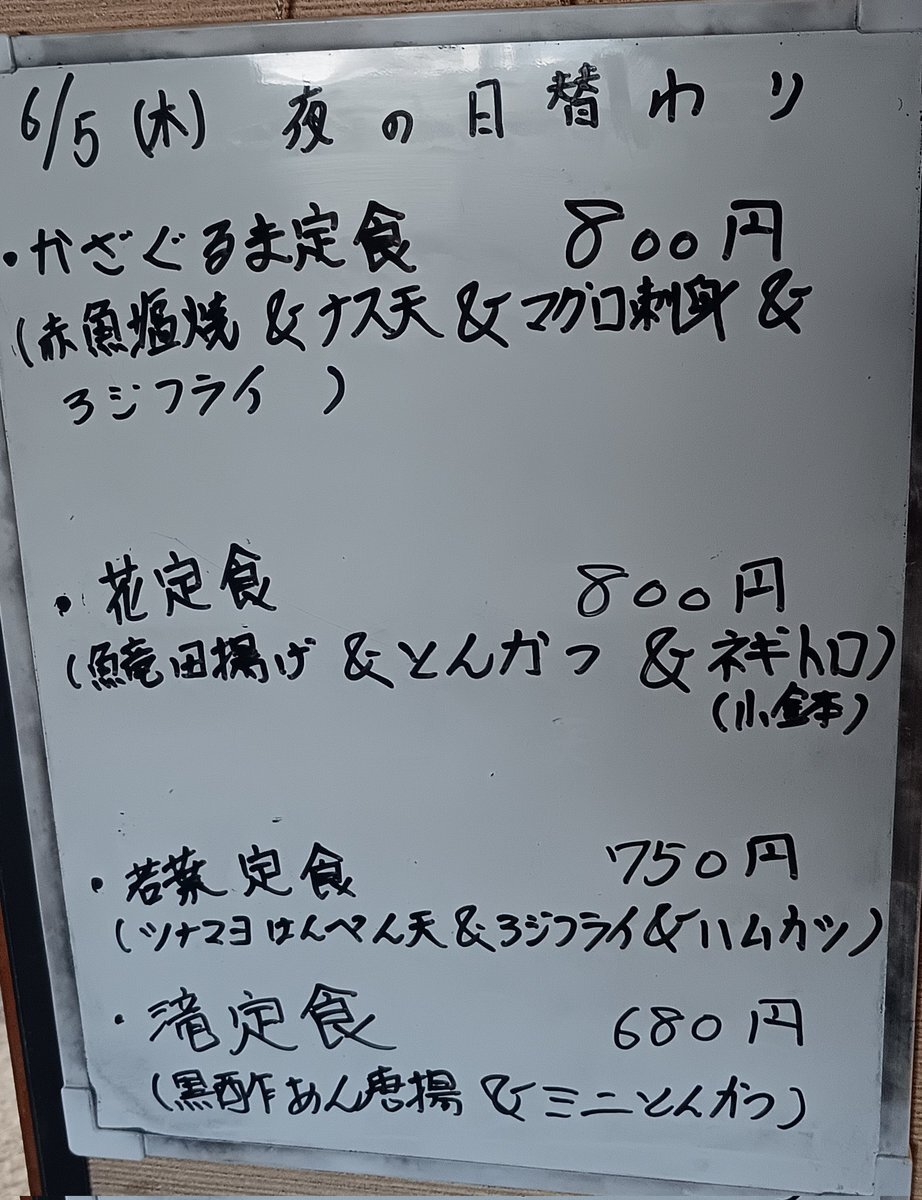 6/5(木) 夜の日替わり
・かざぐるま定食 800円
(赤魚塩焼&ナス天&マグロ刺身&
ろジフライ)
・花定食 800円
(魚竜田揚げ&とんかつ&ネギトロ)
(小鉢)
・若葉定食 750円
(ツナマヨはんぺん天&ろジフライ&ハムカツ)
・清定食 680円
(黒酢あん唐揚&ミニとんかつ)